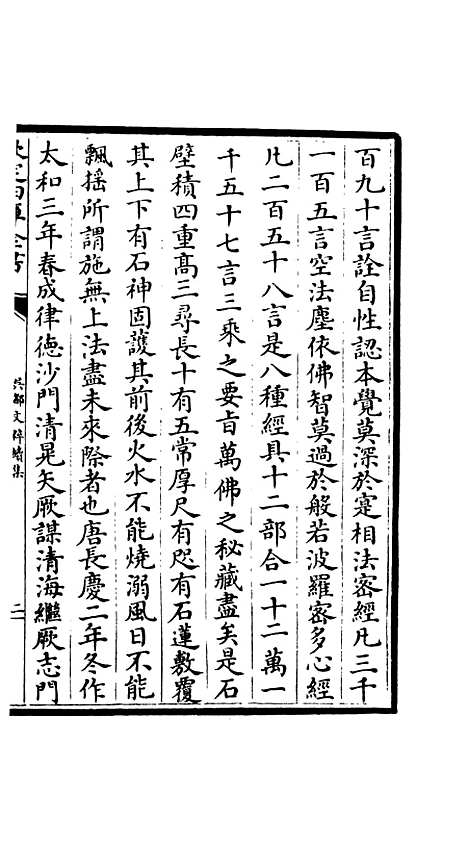 百九十言詮自性認本覺莫深於寔相法密經凡三千
一百五言空法塵依佛智莫過於般若波羅密多心經
凡二百五十八言是八種經具十二部合一十二萬一
千五十七言三乘之要㫖萬佛之秘藏盡矣是石
壁積四重高三尋長十有五常厚尺有咫有石蓮敷覆
其上下有石神固護其前後火水不能燒溺風日不能
飄揺所謂施無上法盡未來際者也唐長慶二年冬作
太和三年春成律德沙門清晃矢厥謀清海繼厥志門
欽定四庫全書
吳都文粹續集
二